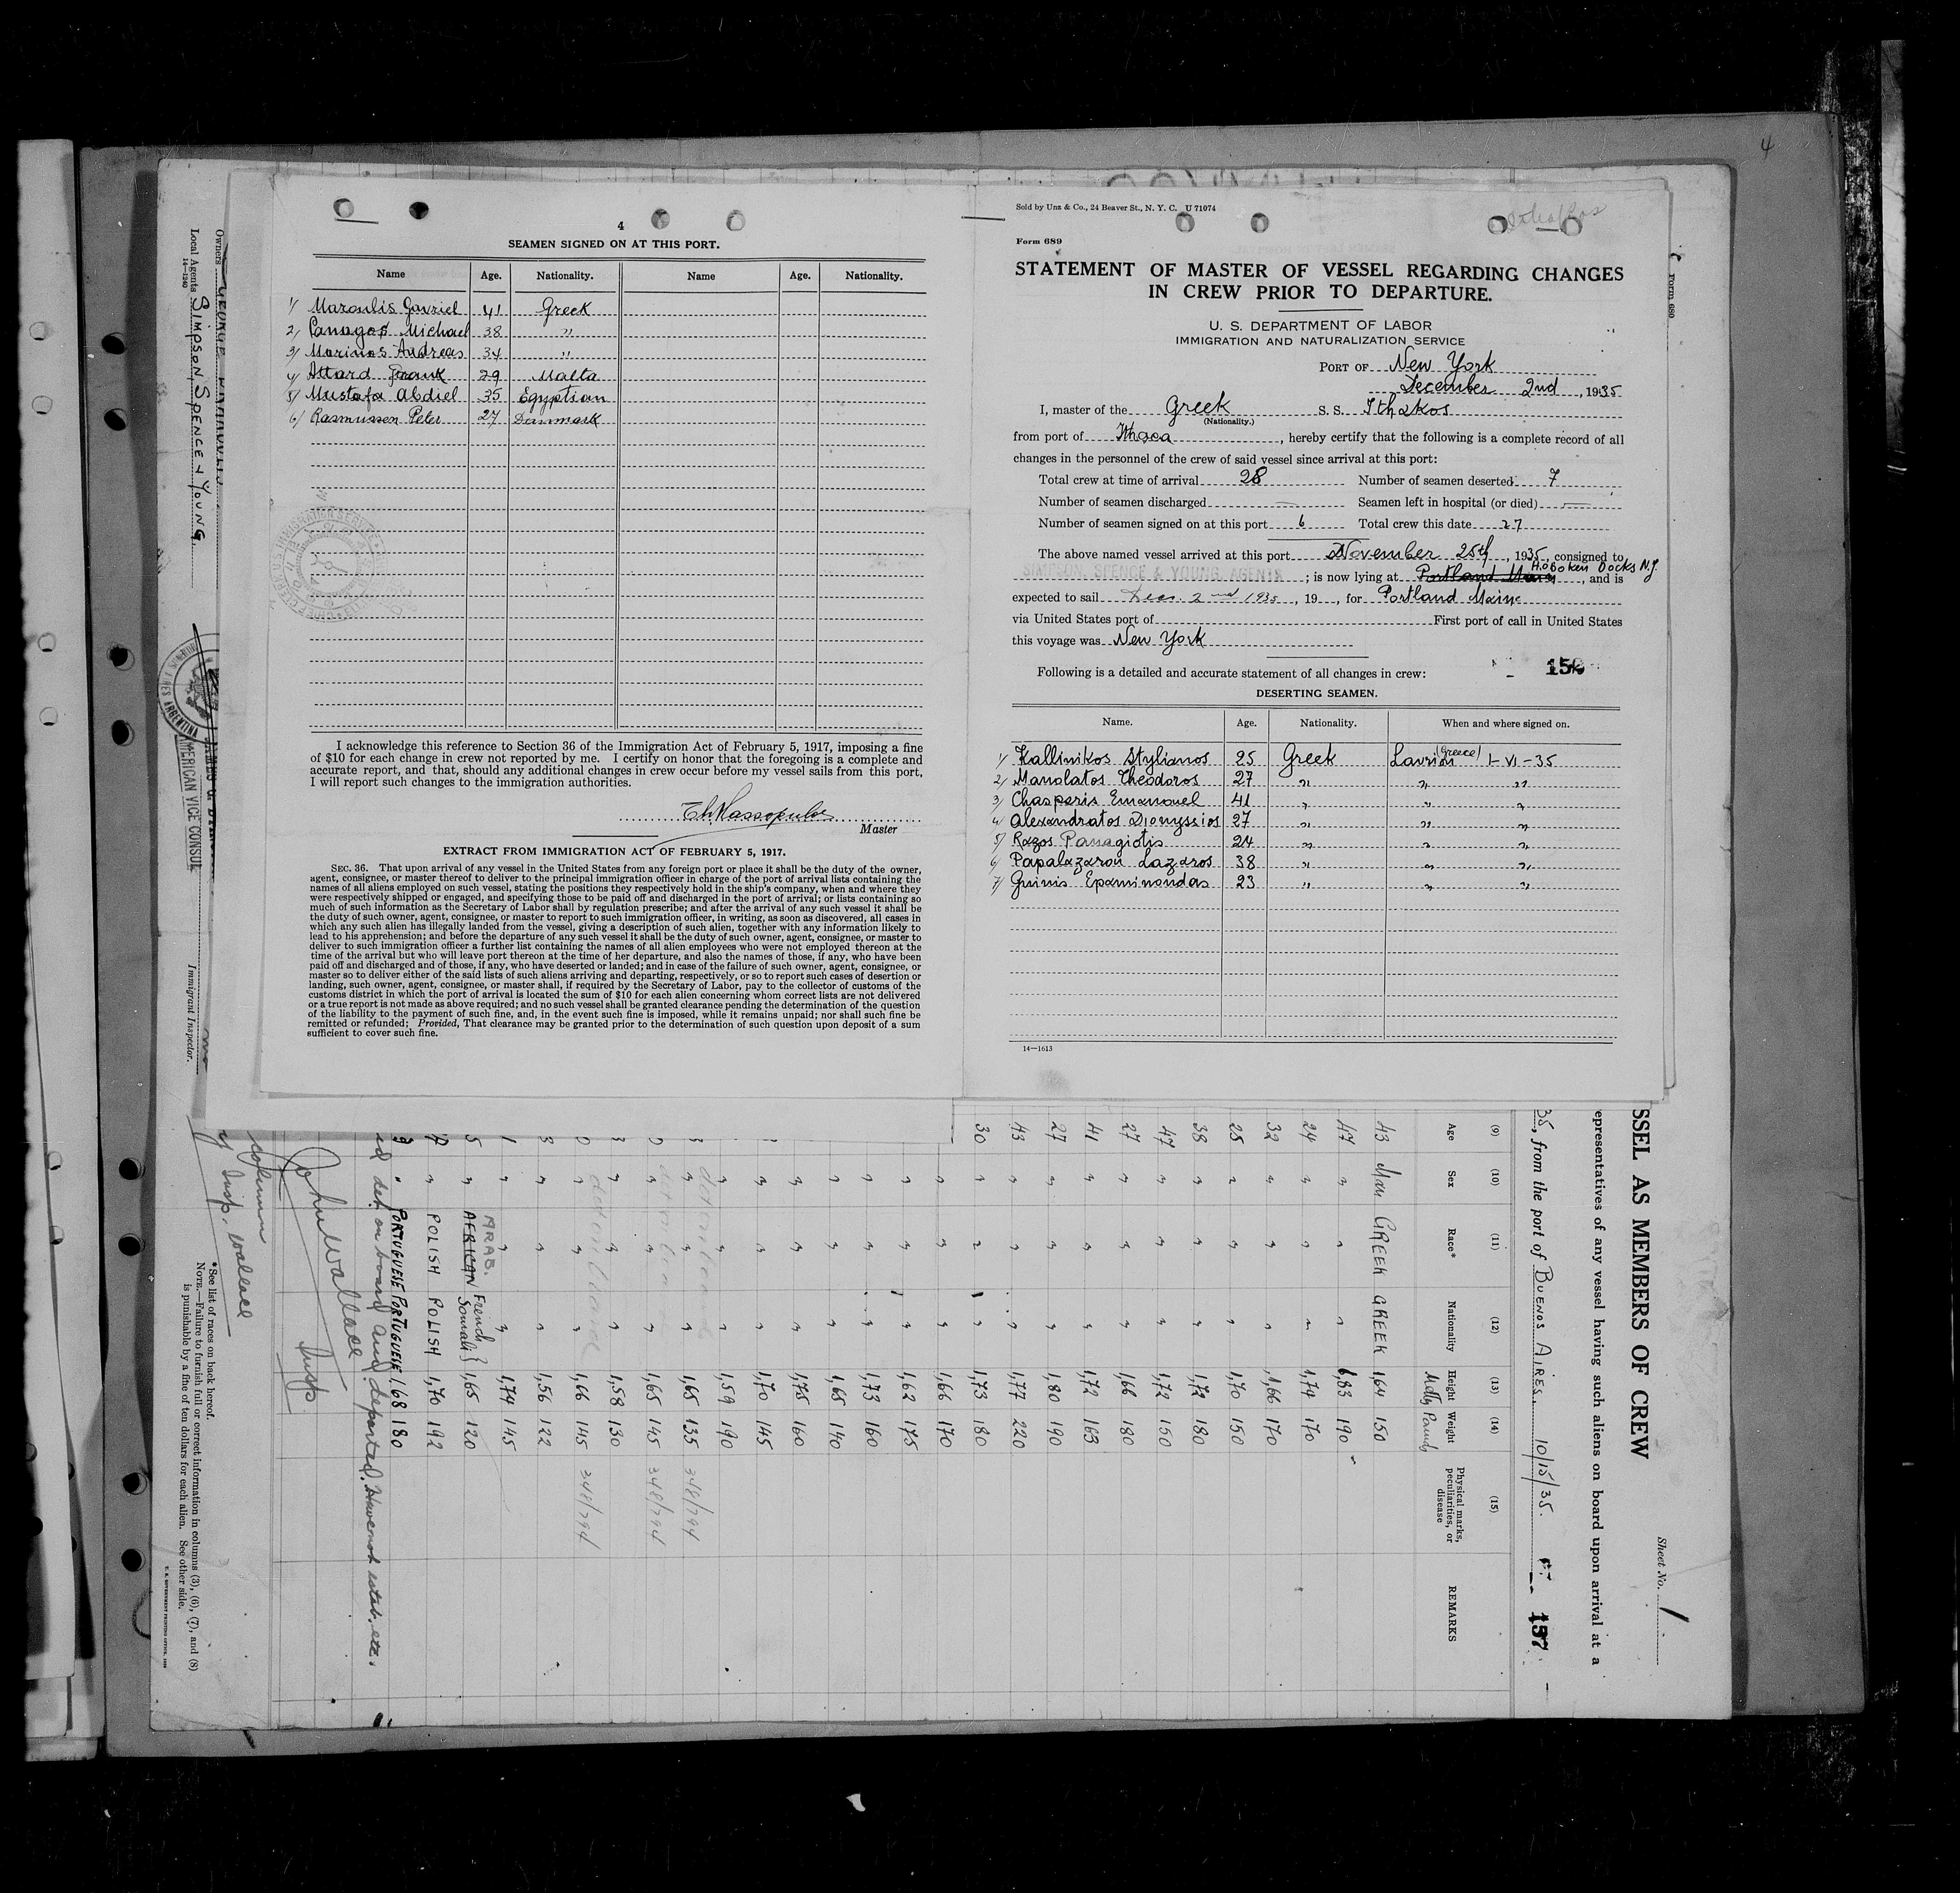 4
4
SEAMEN SIGNED ON AT THIS PORT.
Name Age. Nationality. Name Age. Nationality.
1/ Maroulis Gavriel 41 Greek
2/ Panagos Michael 38 "
3/ Marinos Andreas 34 "
4/ Attard Frank 29 Malta
5/ Mustafa Abdiel 35 Egyptian
6/ Rasmussen Peter 27 Danmark
I acknowledge this reference to Section 36 of the Immigration Act of February 5, 1917, imposing a fine
of $10 for each change in crew not reported by me. I certify on honor that the foregoing is a complete and
accurate report, and that, should any additional changes in crew occur before my vessel sails from this port,
I will report such changes to the immigration authorities.
Master
EXTRACT FROM IMMIGRATION ACT OF FEBRUARY 5, 1917.
SEC. 36. That upon arrival of any vessel in the United States from any foreign port or place it shall be the duty of the owner,
agent, consignee, or master thereof to deliver to the principal immigration officer in charge of the port of arrival lists containing the
names of all aliens employed on such vessel, stating the positions they respectively hold in the ship's company, when and where they
were respectively shipped or engaged, and specifying those to be paid off and discharged in the port of arrival; or lists containing so
much of such information as the Secretary of Labor shall by regulation prescribe; and after the arrival of any such vessel it shall be
the duty of such owner, agent, consignee, or master to report to such immigration officer, in writing, as soon as discovered, all cases in
which any such alien has illegally landed from the vessel, giving a description of such alien, together with any information likely to
lead to his apprehension; and before the departure of any such vessel it shall be the duty of such owner, agent, consignee, or master to
deliver to such immigration officer a further list containing the names of all alien employees who were not employed thereon at the
time of the arrival but who will leave port thereon at the time of her departure, and also the names of those, if any, who have been
paid off and discharged and of those, if any, who have deserted or landed; and in case of the failure of such owner, agent, consignee, or
master so to deliver either of the said lists of such aliens arriving and departing, respectively, or so to report such cases of desertion or
landing, such owner, agent, consignee, or master shall, if required by the Secretary of Labor, pay to the collector of customs of the
customs district in which the port of arrival is located the sum of $10 for each alien concerning whom correct lists are not delivered
or a true report is not made as above required; and no such vessel shall be granted clearance pending the determination of the question
of the liability to the payment of such fine, and, in the event such fine is imposed, while it remains unpaid; nor shall such fine be
remitted or refunded; Provided, That clearance may be granted prior to the determination of such question upon deposit of a sum
sufficient to cover such fine.
Sold by Unz & Co., 24 Beaver St., N. Y. C. U 71074
Form 689
STATEMENT OF MASTER OF VESSEL REGARDING CHANGES
IN CREW PRIOR TO DEPARTURE.
U. S. DEPARTMENT OF LABOR
IMMIGRATION AND NATURALIZATION SERVICE
PORT OF New York
December 2nd, 1935
I, master of the Greek S. S. Ithakos
(Nationality.)
from port of Ithaca, hereby certify that the following is a complete record of all
changes in the personnel of the crew of said vessel since arrival at this port:
Total crew at time of arrival 28 Number of seamen deserted 7
Number of seamen discharged — Seamen left in hospital (or died) —
Number of seamen signed on at this port 6 Total crew this date 27
The above named vessel arrived at this port November 25th, 1935, consigned to
SIMPSON, SPENCE & YOUNG, AGENTS; is now lying at Portland Maine Hoboken Docks N.J., and is
expected to sail Dec. 2nd 1935, 19 , for Portland Maine
via United States port of First port of call in United States
this voyage was New York
Following is a detailed and accurate statement of all changes in crew:
DESERTING SEAMEN.
Name. Age. Nationality. When and where signed on.
1/ Kallinikos Stylianos 25 Greek Lavrion (Greece) 1-VI-35
2/ Manolatos Theodoros 27 " " "
3/ Chasperis Emanouel 41 " " "
4/ Alexandratos Dionyssios 27 " " "
5/ Razos Panagiotis 24 " " "
6/ Papalazarou Lazaros 38 " " "
7/ Guinis Epaminondas 23 " " "
14—1613
Form 680
Owners
Local Agents SIMPSON, SPENCE & YOUNG
14—1240
AMERICAN VICE CONSUL
Immigrant Inspector.
SSEL AS MEMBERS OF CREW
Sheet No. 1
epresentatives of any vessel having such aliens on board upon arrival at a
35, from the port of BUENOS AIRES. 10/15/35.
157
(9) (10) (11) (12) (13) (14) (15)
Age Sex Race* Nationality Height Weight Physical marks, peculiarities, or disease REMARKS
43 GREEK GREEK 1,64 150
47 " " " 1,83 190
24 " " " 1,74 170
32 " " " 1,66 170
25 " " " 1,70 150
38 " " " 1,72 180
47 " " " 1,72 150
27 " " " 1,66 180
41 " " " 1,72 163
27 " " " 1,80 190
43 " " " 1,77 220
30 " " " 1,73 180
" " " 1,66 170
" " " 1,62 175
" " " 1,73 160
" " " 1,65 140
" " " 1,75 160
" " " 1,70 145
" " " 1,59 190
" " " 1,65 135 348/794
" " " 1,65 145 348/794
" " " 1,58 130
" " " 1,66 145 348/794
" " " 1,56 122
" " " 1,74 145
" ARAB. AFRICAN French Somali 1,65 120
" POLISH POLISH 1,70 192
" PORTUGUESE PORTUGUESE 1,68 180
det. on board and deported. Have not estab. etc.
John Wallace Insp
column
Insp. Wallace
*See list of races on back hereof.
NOTE.—Failure to furnish full or correct information in columns (3), (6), (7), and (8)
is punishable by a fine of ten dollars for each alien. See other side.